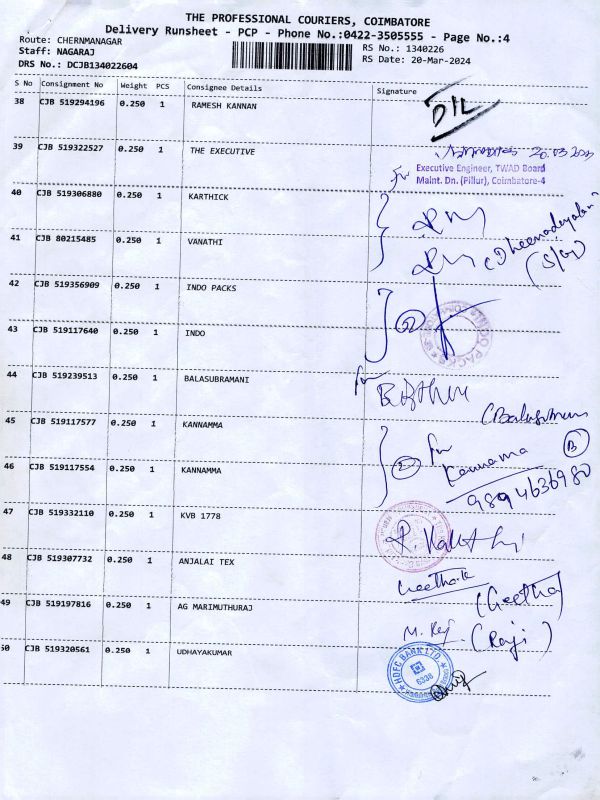 THE PROFESSIONAL COURIERS, COIMBATORE
Delivery Runsheet - PCP - Phone No.:0422-3505555 - Page No.:4
Route: CHERNMANAGAR
Staff: NAGARAJ
RS No.: 1340226
DRS No.: DCJB134022604
RS Date: 20-Mar-2024
S No Consignment No Weight PCS Consignee Details Signature
38 CJB 519294196 0.250 1 RAMESH KANNAN D/L
39 CJB 519322527 0.250 1 THE EXECUTIVE
for Executive Engineer, TWAD Board
Maint. Dn. (Pillur), Coimbatore-4
40 CJB 519306880 0.250 1 KARTHICK
41 CJB 80215485 0.250 1 VANATHI
42 CJB 519356909 0.250 1 INDO PACKS
43 CJB 519117640 0.250 1 INDO
44 CJB 519239513 0.250 1 BALASUBRAMANI for
45 CJB 519117577 0.250 1 KANNAMMA for
Kannama
46 CJB 519117554 0.250 1 KANNAMMA 9894636980
47 CJB 519332110 0.250 1 KVB 1778
48 CJB 519307732 0.250 1 ANJALAI TEX Geetha.k
(Geetha)
49 CJB 519197816 0.250 1 AG MARIMUTHURAJ M. Raji (Raji)
50 CJB 519320561 0.250 1 UDHAYAKUMAR HDFC BANK LTD.
6338